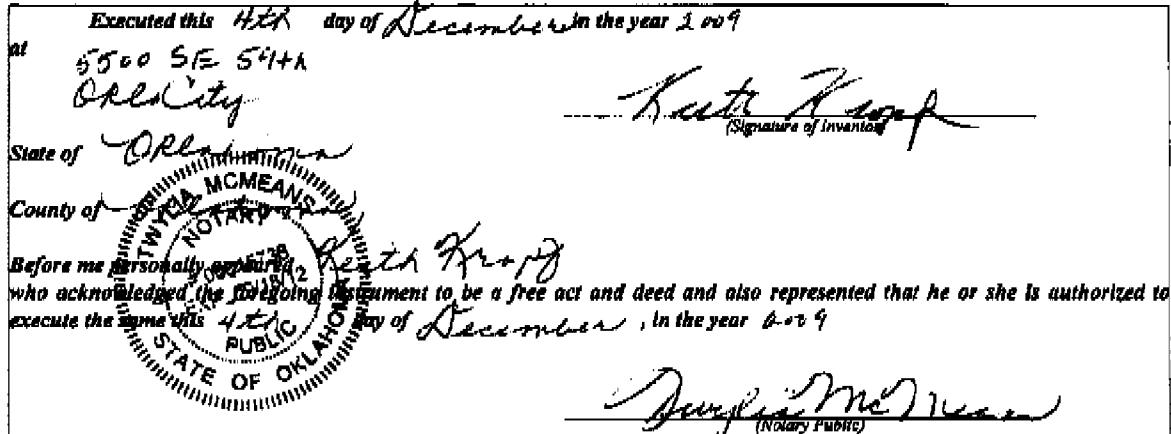 Executed this 4th day of December in the year 2009
at
5500 SE 59th
Okla City
Keith Kropf
(Signature of Inventor)
State of Oklahoma
County of
TWYLIA MCMEANS
NOTARY
PUBLIC
STATE OF OKLAHOMA
Before me personally appeared Keith Kropf
who acknowledged the foregoing instrument to be a free act and deed and also represented that he or she is authorized to
execute the same this 4th day of December, in the year 2009
Twylia McMeans
(Notary Public)